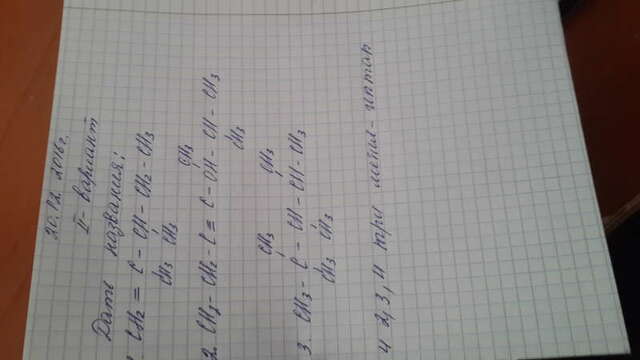 20.12.2016г.
II- вариант
Дать названия:
CH2 = C - CH - CH2 - CH3
CH3 CH3
CH3
2. CH3 - CH2 - C ≡ C - CH - CH - CH3
CH3
CH3 CH3
3. CH3 - C - CH - CH - CH3
CH3 CH3
4 2,3,4 три метил-гептан